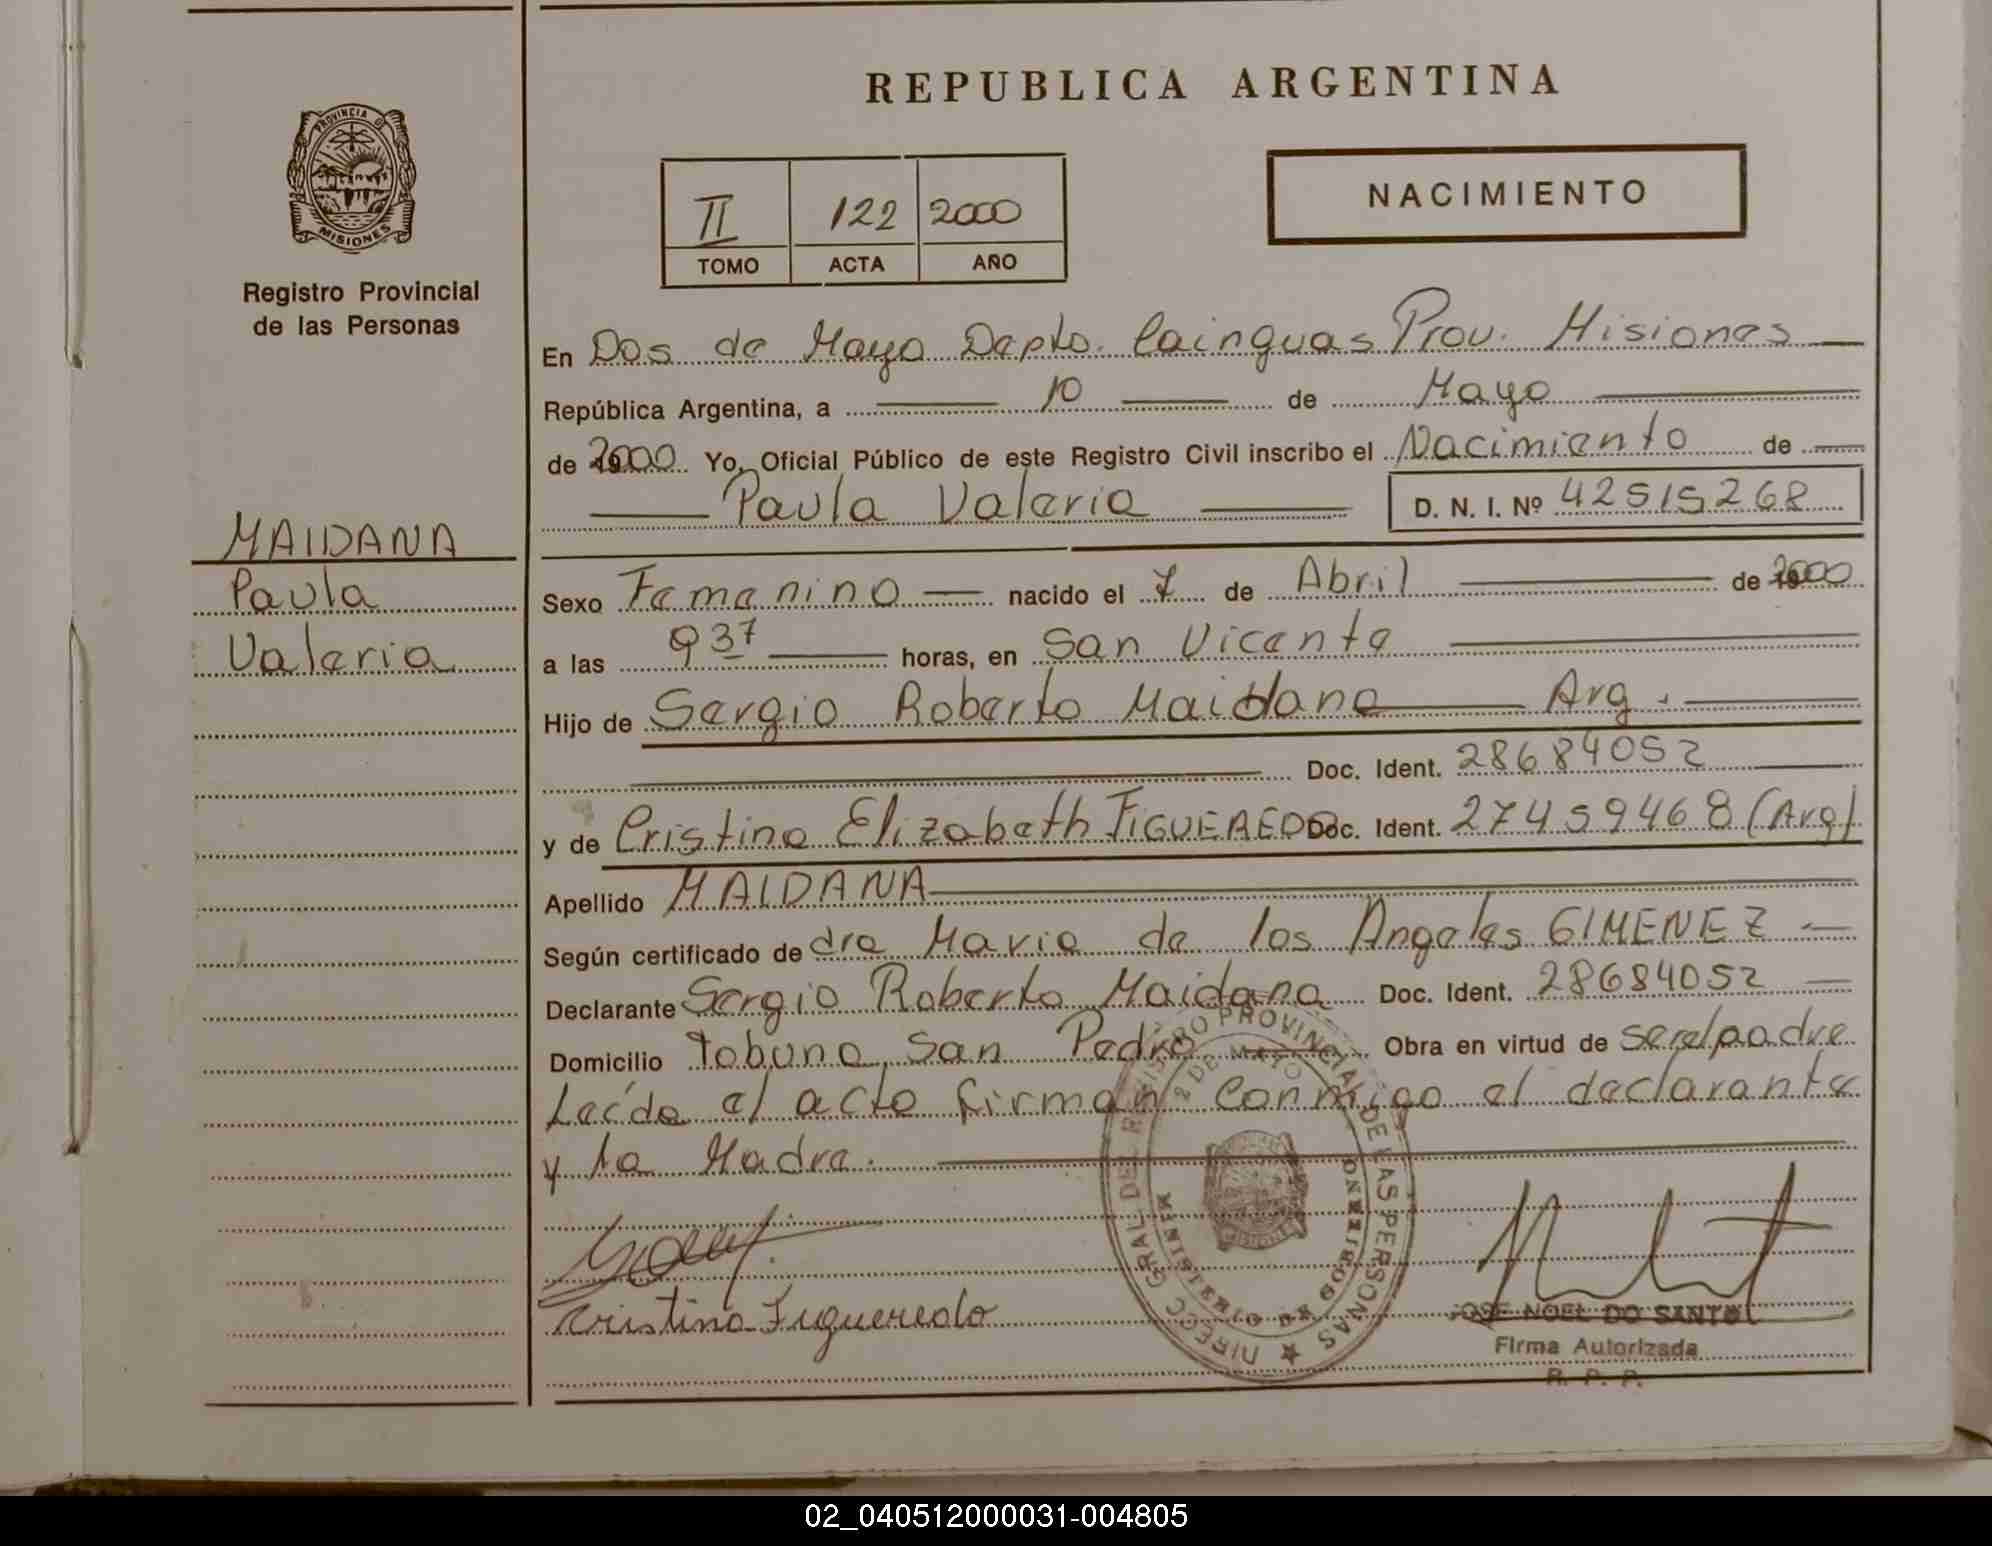 REPUBLICA ARGENTINA
PROVINCIA D
MISIONES
Registro Provincial
de las Personas
II 122 2000
TOMO ACTA AÑO
NACIMIENTO
En Dos de Mayo Depto. Cainguas Prov. Misiones
República Argentina, a 10 de Mayo
de 2000 Yo, Oficial Público de este Registro Civil inscribo el Nacimiento de
Paula Valeria D. N. I. Nº 42515268
MAIDANA
Paula
Valeria
Sexo Femenino nacido el 7 de Abril de 2000
a las 9 37 horas, en San Vicente
Hijo de Sergio Roberto Maidana Arg.
Doc. Ident. 28684052
y de Cristina Elizabeth FIGUEREDO Doc. Ident. 27459468 (Arg)
Apellido MAIDANA
Según certificado de dra Maria de los Angeles GIMENEZ
Declarante Sergio Roberto Maidana Doc. Ident. 28684052
Domicilio Tobuna San Pedro Obra en virtud de ser el padre
Leída el acto firman Conmigo el declarante
y la Madre.
Cristina Figueredo
DIRECC GRAL DEL REGISTRO PROVINCIAL DE LAS PERSONAS
2 DE MAYO
MINISTERIO DE GOBIERNO
MISIONES
JOSE NOEL DO SANTOS
Firma Autorizada
R. P. P.
02_040512000031-004805